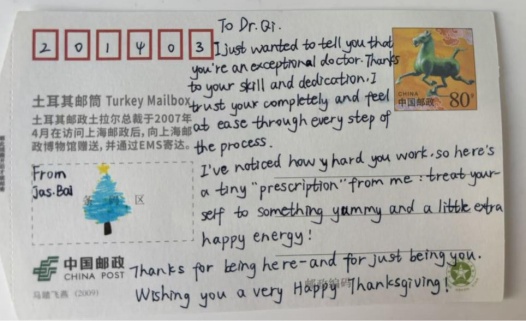 To Dr. Qi.
201403
I just wanted to tell you that
you're an exceptional doctor. Thanks
to your skill and dedication. I
trust your completely and feel
at ease through every step of
the process.
I've noticed how yhard you work. so here's
a tiny "prescription" from me : treat your-
self to something yummy and a little extra
happy energy!
Thanks for being here-and for just being you.
Wishing you a very Happy Thanksgiving!
CHINA
中国邮政
80分
土耳其邮筒 Turkey Mailbox
土耳其邮政土拉尔总裁于2007年
4月在访问上海邮政后，向上海邮
政博物馆赠送，并通过EMS寄达。
From
Jas.Bai
区
中国邮政
CHINA POST
马踏飞燕 (2009)
邮政编码